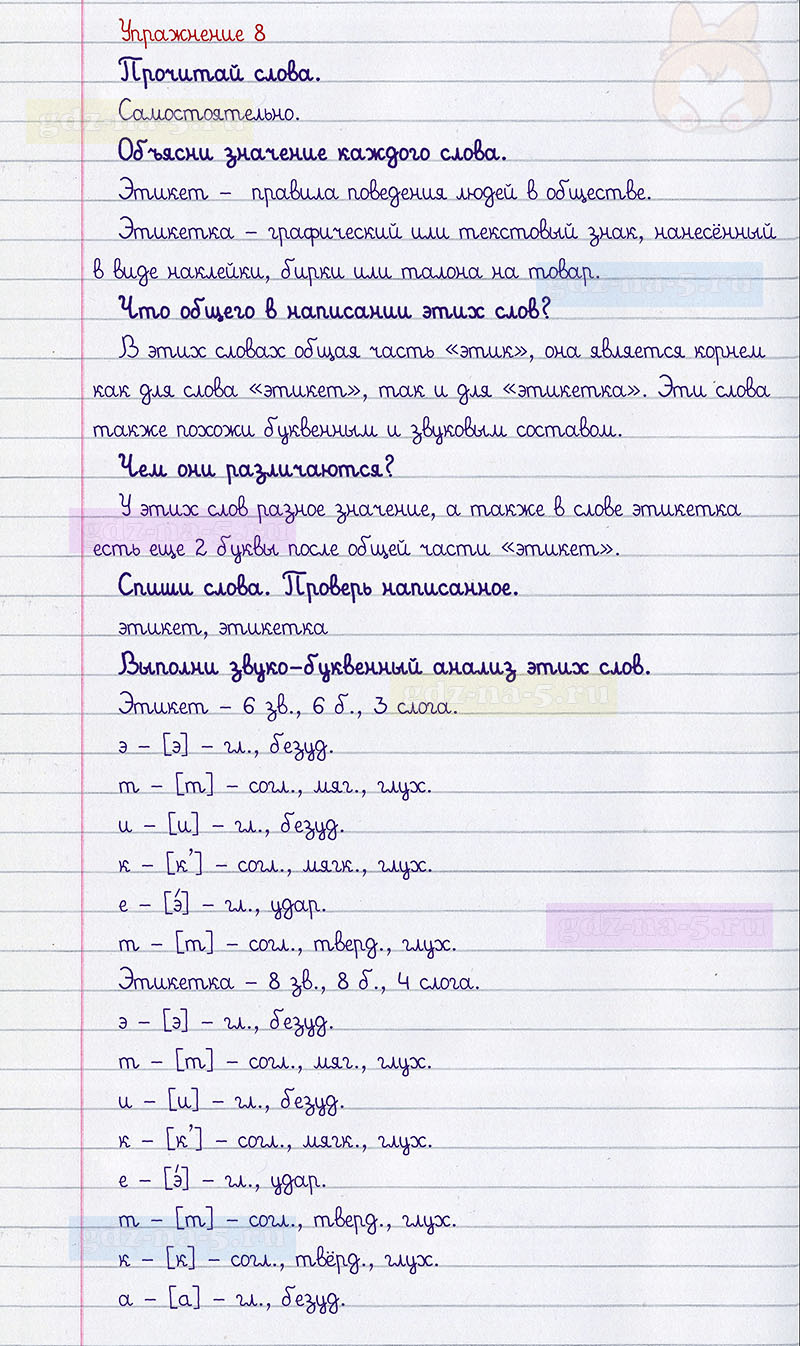 Упражнение 8
Прочитай слова.
Самостоятельно.
gdz-na-5.ru
Объясни значение каждого слова.
Этикет – правила поведения людей в обществе.
Этикетка – графический или текстовый знак, нанесённый
в виде наклейки, бирки или талона на товар.
gdz-na-5.ru
Что общего в написании этих слов?
В этих словах общая часть «этик», она является корнем
как для слова «этикет», так и для «этикетка». Эти слова
также похожи буквенным и звуковым составом.
Чем они различаются?
У этих слов разное значение, а также в слове этикетка
gdz-na-5.ru
есть еще 2 буквы после общей части «этикет».
Спиши слова. Проверь написанное.
этикет, этикетка
Выполни звуко-буквенный анализ этих слов.
gdz-na-5.ru
Этикет – 6 зв., 6 б., 3 слога.
э – [э] – гл., безуд.
т – [т] – согл., мяг., глух.
и – [и] – гл., безуд.
к – [к’] – согл., мягк., глух.
е – [э́] – гл., удар.
gdz-na-5.ru
т – [т] – согл., тверд., глух.
Этикетка – 8 зв., 8 б., 4 слога.
э – [э] – гл., безуд.
т – [т] – согл., мяг., глух.
и – [и] – гл., безуд.
к – [к’] – согл., мягк., глух.
е – [э́] – гл., удар.
т – [т] – согл., тверд., глух.
gdz-na-5.ru
к – [к] – согл., твёрд., глух.
а – [а] – гл., безуд.